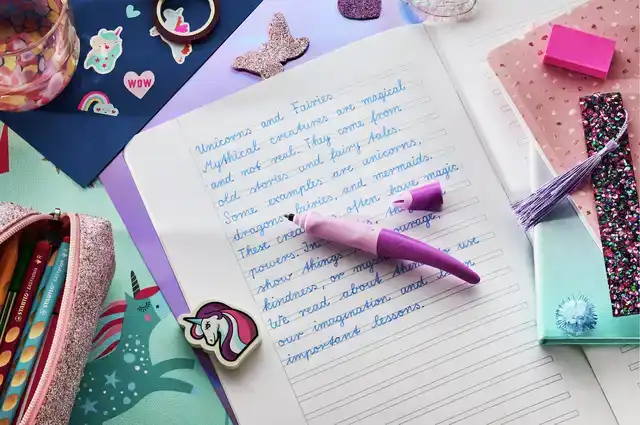 WOW
Unicorns and Fairies
Mythical creatures are magical
and not real. They come from
old stories and fairy tales.
Some examples are unicorns,
dragons, fairies, and mermaids.
These often have magic
powers. In
show things
kindness, or
We read about use
our imagination, and
important lessons.
STABILO